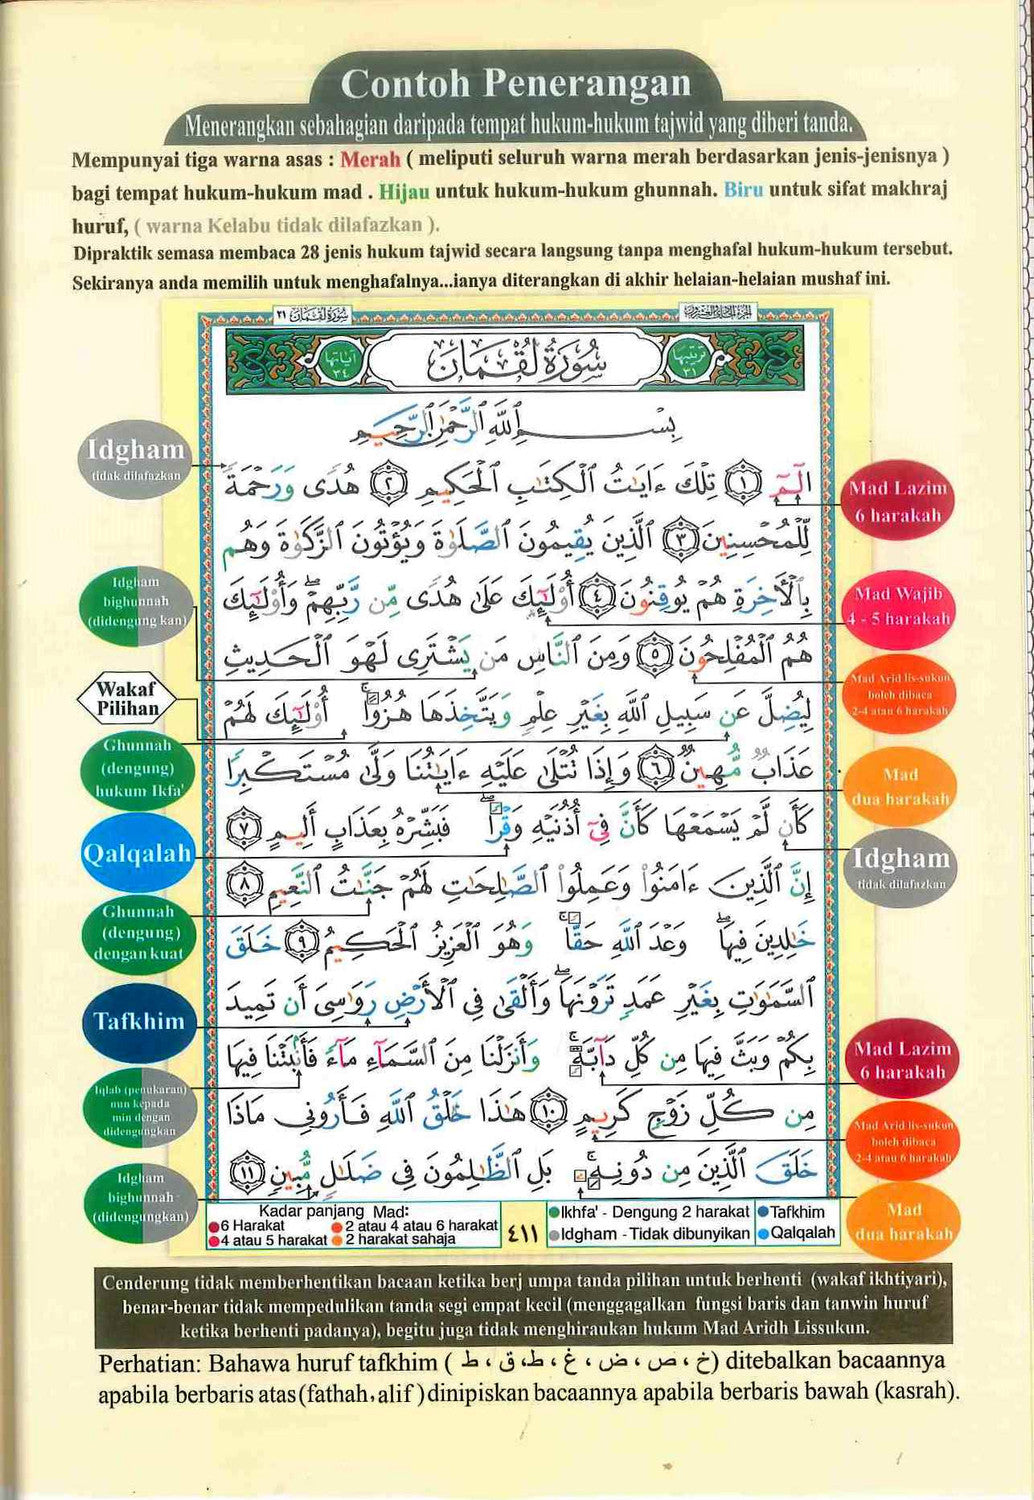 Contoh Penerangan
Menerangkan sebahagian daripada tempat hukum-hukum tajwid yang diberi tanda.
Mempunyai tiga warna asas : Merah ( meliputi seluruh warna merah berdasarkan jenis-jenisnya )
bagi tempat hukum-hukum mad . Hijau untuk hukum-hukum ghunnah. Biru untuk sifat makhraj
huruf, ( warna Kelabu tidak dilafazkan ).
Dipraktik semasa membaca 28 jenis hukum tajwid secara langsung tanpa menghafal hukum-hukum tersebut.
Sekiranya anda memilih untuk menghafalnya...ianya diterangkan di akhir helaian-helaian mushaf ini.
سُورَةُ لُقْمَان ٣١
الجزء الحادي والعشرون
ترتيبها ٣١
سُورَةُ لُقْمَان
آياتها ٣٤
بِسْمِ ٱللَّهِ ٱلرَّحْمَٰنِ ٱلرَّحِيمِ
الٓمٓ ١ تِلْكَ ءَايَٰتُ ٱلْكِتَٰبِ ٱلْحَكِيمِ ٢ هُدًى وَرَحْمَةً
لِّلْمُحْسِنِينَ ٣ ٱلَّذِينَ يُقِيمُونَ ٱلصَّلَوٰةَ وَيُؤْتُونَ ٱلزَّكَوٰةَ وَهُم
بِٱلْأَخِرَةِ هُمْ يُوقِنُونَ ٤ أُو۟لَٰٓئِكَ عَلَىٰ هُدًى مِّن رَّبِّهِمْ ۖ وَأُو۟لَٰٓئِكَ
هُمُ ٱلْمُفْلِحُونَ ٥ وَمِنَ ٱلنَّاسِ مَن يَشْتَرِى لَهْوَ ٱلْحَدِيثِ
لِيُضِلَّ عَن سَبِيلِ ٱللَّهِ بِغَيْرِ عِلْمٍ وَيَتَّخِذَهَا هُزُوًا ۚ أُو۟لَٰٓئِكَ لَهُمْ
عَذَابٌ مُّهِينٌ ٦ وَإِذَا تُتْلَىٰ عَلَيْهِ ءَايَٰتُنَا وَلَّىٰ مُسْتَكْبِرًا
كَأَن لَّمْ يَسْمَعْهَا كَأَنَّ فِىٓ أُذُنَيْهِ وَقْرًا ۖ فَبَشِّرْهُ بِعَذَابٍ أَلِيمٍ ٧
إِنَّ ٱلَّذِينَ ءَامَنُوا۟ وَعَمِلُوا۟ ٱلصَّٰلِحَٰتِ لَهُمْ جَنَّٰتُ ٱلنَّعِيمِ ٨
خَٰلِدِينَ فِيهَا ۖ وَعْدَ ٱللَّهِ حَقًّا ۚ وَهُوَ ٱلْعَزِيزُ ٱلْحَكِيمُ ٩ خَلَقَ
ٱلسَّمَٰوَٰتِ بِغَيْرِ عَمَدٍ تَرَوْنَهَا ۖ وَأَلْقَىٰ فِى ٱلْأَرْضِ رَوَٰسِىَ أَن تَمِيدَ
بِكُمْ وَبَثَّ فِيهَا مِن كُلِّ دَآبَّةٍ ۚ وَأَنزَلْنَا مِنَ ٱلسَّمَآءِ مَآءً فَأَنۢبَتْنَا فِيهَا
مِن كُلِّ زَوْجٍ كَرِيمٍ ١٠ هَٰذَا خَلْقُ ٱللَّهِ فَأَرُونِى مَاذَا
خَلَقَ ٱلَّذِينَ مِن دُونِهِۦ ۚ بَلِ ٱلظَّٰلِمُونَ فِى ضَلَٰلٍ مُّبِينٍ ١١
Idgham
tidak dilafazkan
Idgham
bighunnah
(didengung kan)
Wakaf
Pilihan
Ghunnah
(dengung)
hukum Ikfa'
Qalqalah
Ghunnah
(dengung)
dengan kuat
Tafkhim
Iqlab (penukaran)
nun kepada
mim dengan
didengungkan
Idgham
bighunnah
(didengungkan)
Mad Lazim
6 harakah
Mad Wajib
4 - 5 harakah
Mad Arid lis-sukun
boleh dibaca
2-4 atau 6 harakah
Mad
dua harakah
Idgham
tidak dilafazkan
Mad Lazim
6 harakah
Mad Arid lis-sukun
boleh dibaca
2-4 atau 6 harakah
Mad
dua harakah
Kadar panjang Mad:
6 Harakat
2 atau 4 atau 6 harakat
4 atau 5 harakat
2 harakat sahaja
٤١١
Ikhfa' - Dengung 2 harakat
Tafkhim
Idgham - Tidak dibunyikan
Qalqalah
Cenderung tidak memberhentikan bacaan ketika berj umpa tanda pilihan untuk berhenti (wakaf ikhtiyari),
benar-benar tidak mempedulikan tanda segi empat kecil (menggagalkan fungsi baris dan tanwin huruf
ketika berhenti padanya), begitu juga tidak menghiraukan hukum Mad Aridh Lissukun.
Perhatian: Bahawa huruf tafkhim ( خ ، ص ، ض ، غ ، ط، ق ، ظ ) ditebalkan bacaannya
apabila berbaris atas (fathah, alif ) dinipiskan bacaannya apabila berbaris bawah (kasrah).